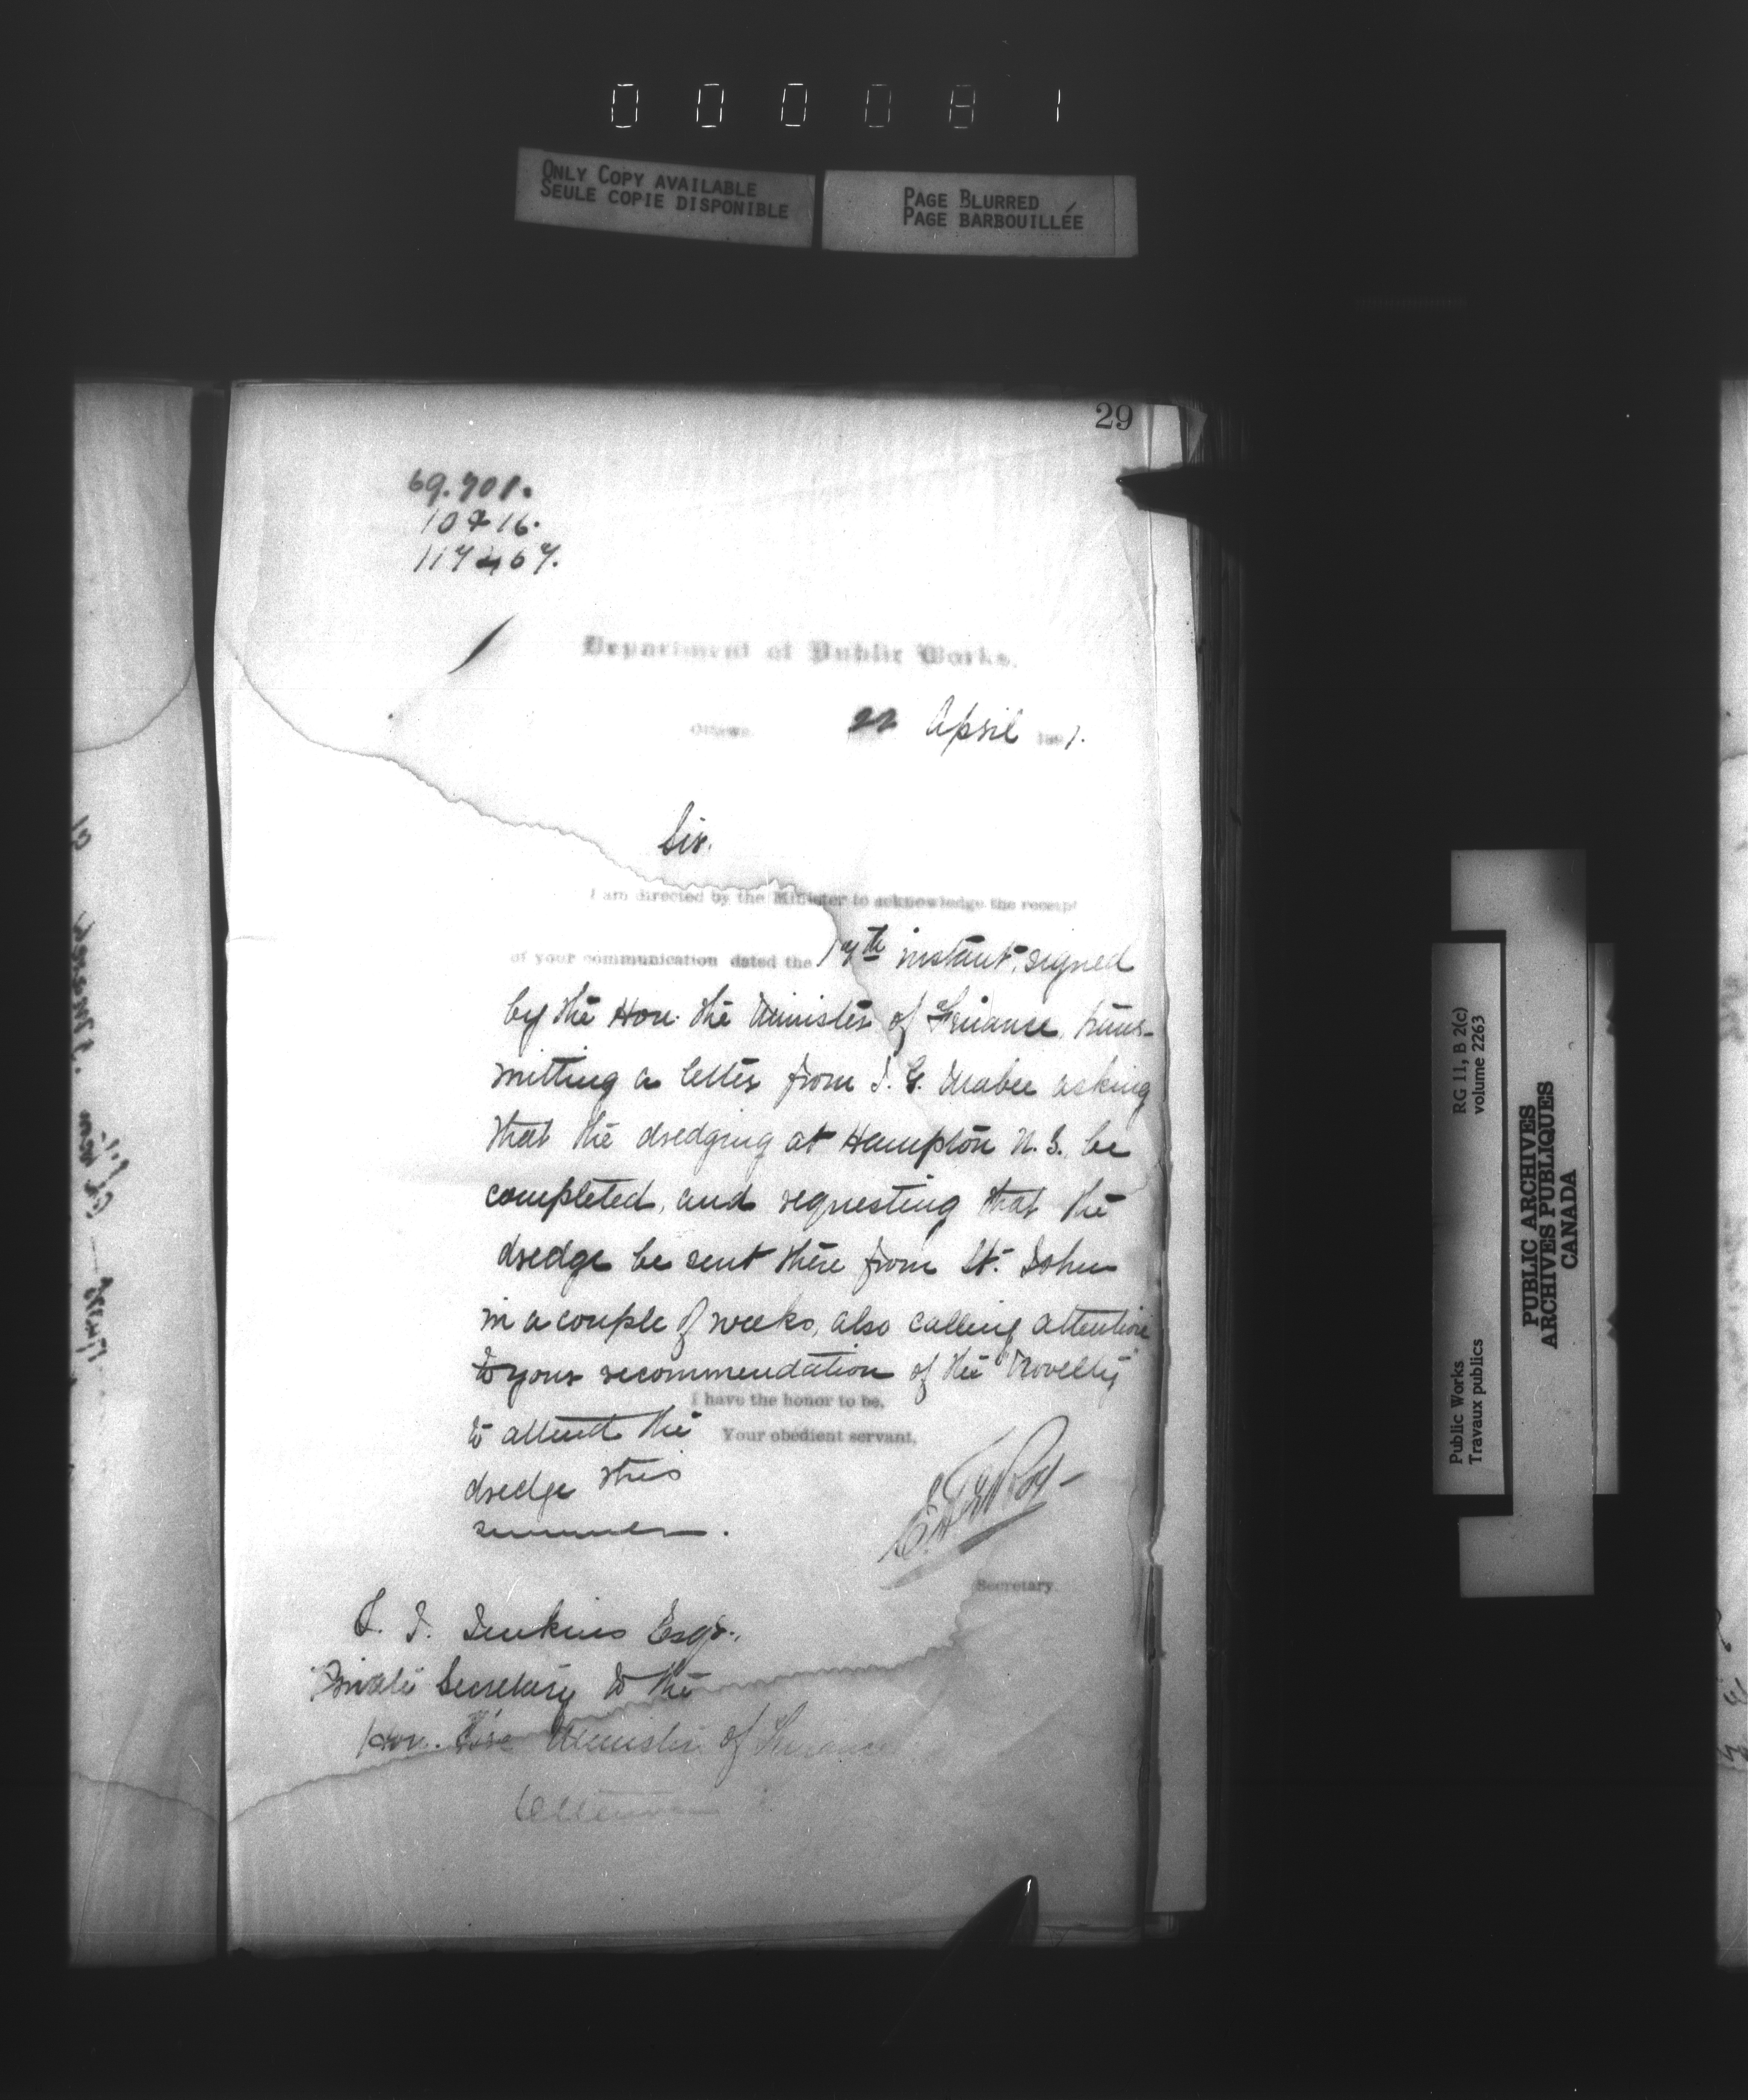 000081
ONLY COPY AVAILABLE
SEULE COPIE DISPONIBLE
PAGE BLURRED
PAGE BARBOUILLÉE
29
69.701.
10716.
117467.
Department of Public Works.
Ottawa 22 April 1891.
Sir.
I am directed by the Minister to acknowledge the receipt
of your communication dated the 17th instant, signed
by the Hon. the Minister of Finance, trans-
mitting a letter from I. G. Mabee asking
that the dredging at Hampton N. S. be
completed, and requesting that the
dredge be sent there from St. John
in a couple of weeks, also calling attention
to your recommendation of the "Novelty"
I have the honor to be,
to attend the
Your obedient servant,
dredge this
summer.
Secretary.
Jenkins Esqr.,
Private Secretary to the
Hon. the Minister of Finance
Ottawa
RG 11, B 2(c)
volume 2263
Public Works
Travaux publics
PUBLIC ARCHIVES
ARCHIVES PUBLIQUES
CANADA